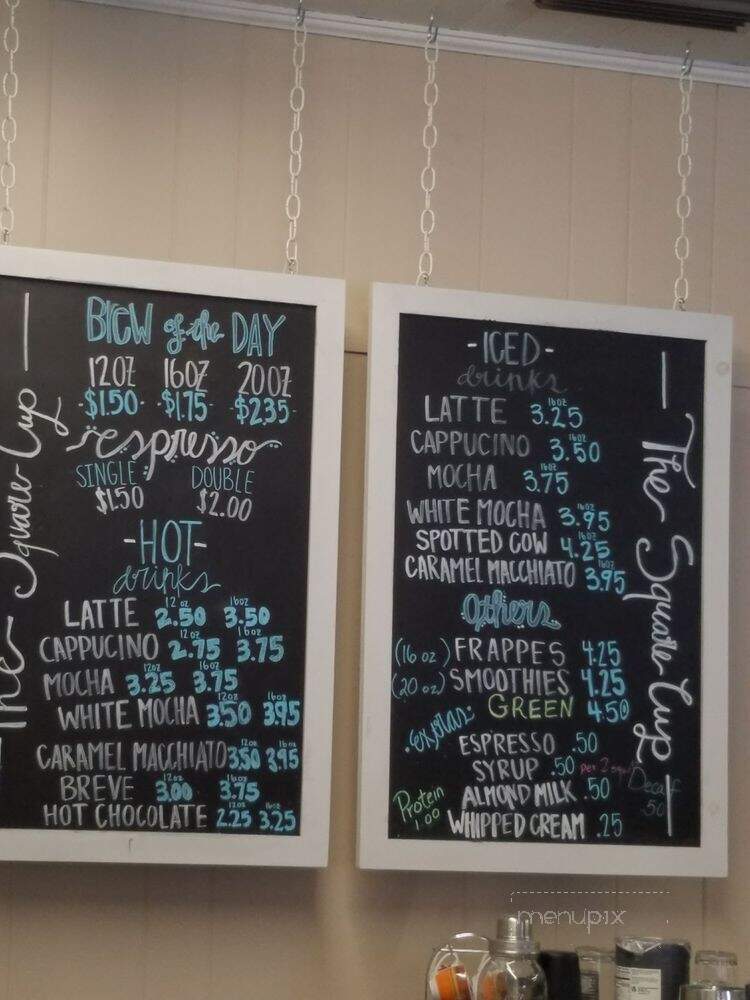 The Square Cup
BREW of the DAY
12OZ 16OZ 20OZ
$1.50 $1.75 $2.35
espresso
SINGLE DOUBLE
$1.50 $2.00
-HOT-
drinks
12oz 16oz
LATTE 2.50 3.50
12oz 16oz
CAPPUCINO 2.75 3.75
12oz 16oz
MOCHA 3.25 3.75
12oz 16oz
WHITE MOCHA 3.50 3.95
12oz 16oz
CARAMEL MACCHIATO 3.50 3.95
12oz 16oz
BREVE 3.00 3.75
12oz 16oz
HOT CHOCOLATE 2.25 3.25
-ICED-
drinks
16oz
LATTE 3.25
16oz
CAPPUCINO 3.50
16oz
MOCHA 3.75
16oz
WHITE MOCHA 3.95
16oz
SPOTTED COW 4.25
16oz
CARAMEL MACCHIATO 3.95
Others
(16 oz) FRAPPES 4.25
(20 oz) SMOOTHIES 4.25
GREEN 4.50
extras:
ESPRESSO .50
SYRUP .50 per 2
ALMOND MILK .50
WHIPPED CREAM .25
Protein
1.00
Decaf
.50
The Square Cup
menupix